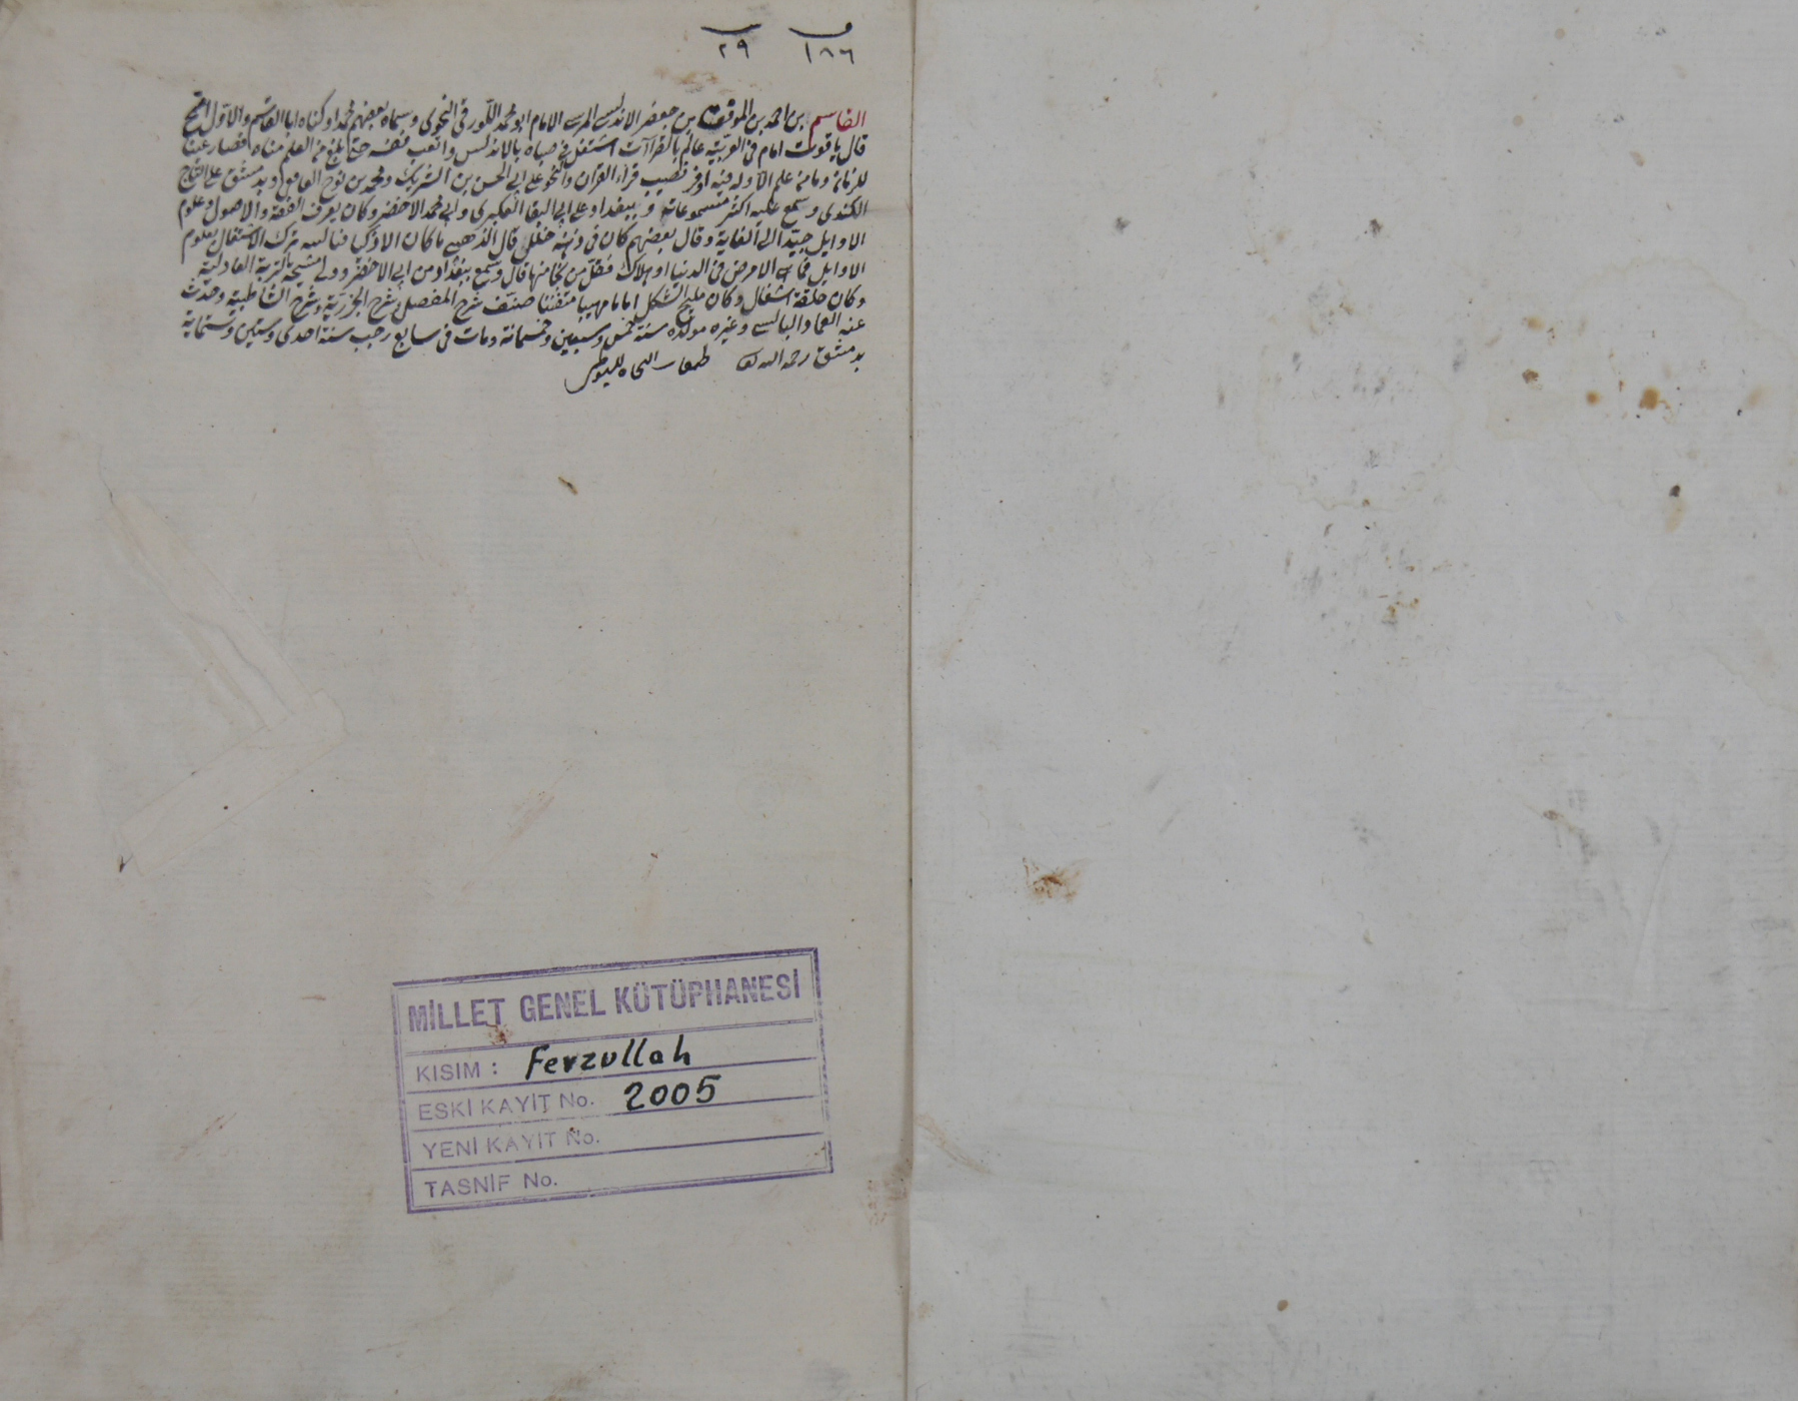 ١٨٦ ٢٩
القاسم بن احمد بن الموفق بن جعفر الاندلسى المرسى الامام ابو محمد اللورقى النحوى وسماه بعضهم محمدا وكناه ابا القاسم والاول اصح
قال ياقوت امام فى العربية عالم بالقراآت اشتغل فى صباه بالاندلس واتعب نفسه حتى بلغ من العلم مناه فصار عينا
للزمان وما من علم الا وله فيه اوفر نصيب قرأ القرآن والنحو على ابى الحسن بن الشريك ومحمد بن نوح الغافقى وبدمشق على التاج
الكندى وسمع عليه اكثر مسموعاته وببغداد على ابى البقا العكبرى وابى محمد الاخضر وكان يعرف الفقه والاصول وعلوم
الاوايل جيدا الى الغاية وقال بعضهم كان فى ذهنه خلل قال الذهبى ما كان الا ذكيا فياليته ترك الاشتغال بعلوم
الاوايل فما هى الا مرض فى الدنيا او هلاك فقل من نجا منها قال وسمع ببغداد من ابى الاخضر وولى مشيخة التربة العادلية
وكان حلقة اشغال وكان مليح الشكل اماما مهيبا متفننا صنف شرح المفصل وشرح الجزولية وشرح الشاطبية وحدث
عنه العماد البالسى وغيره مولده سنة خمس وسبعين وخمسمائة ومات فى سابع رجب سنة احدى وستين وستماية
بدمشق رحمه الله طبقات النحاه للسيوطى
MİLLET GENEL KÜTÜPHANESİ
KISIM : Feyzullah
ESKİ KAYIT No. 2005
YENİ KAYIT No.
TASNİF No.